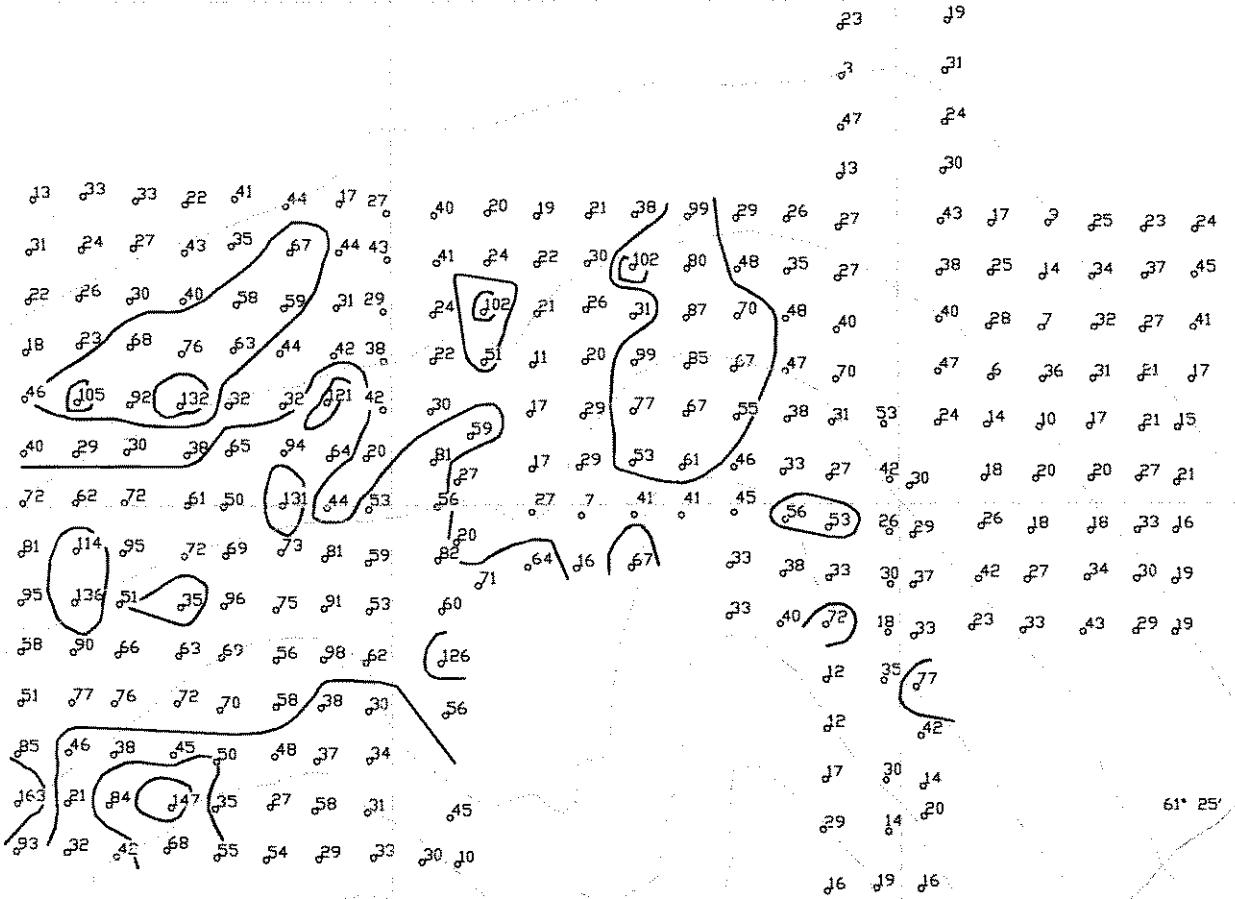 23 19
3 31
47 24
13 30
13 33 33 22 41 44 17 27 40 20 19 21 38 99 29 26 27 43 17 9 25 23 24
31 24 27 43 35 67 44 43 41 24 22 30 102 80 48 35 27 38 25 14 34 37 45
22 26 30 40 58 59 31 29 24 102 21 26 31 87 70 48 40 40 28 7 32 27 41
18 23 68 76 63 44 42 38 22 51 11 20 99 85 67 47 70 47 6 36 31 21 17
46 105 92 132 32 32 121 42 30 17 29 77 67 55 38 31 53 24 14 10 17 21 15
59
40 29 30 38 65 94 64 20 81 17 29 53 61 46 33 27 42 30 18 20 20 27 21
27
72 62 72 61 50 131 44 53 56 27 7 41 41 45 56 53 26 29 26 18 18 33 16
20
81 114 95 72 69 73 81 59 82 64 16 67 33 38 33 30 37 42 27 34 30 19
71
95 136 51 35 96 75 91 53 60 33 40 72 18 33 23 33 43 29 19
58 90 66 63 69 56 98 62 126 12 35 77
51 77 76 72 70 58 38 30 56 12 42
85 46 38 45 50 48 37 34 17 30 14
163 21 84 147 35 27 58 31 45 29 14 20 61° 25'
93 32 42 68 55 54 29 33 30 10
16 19 16